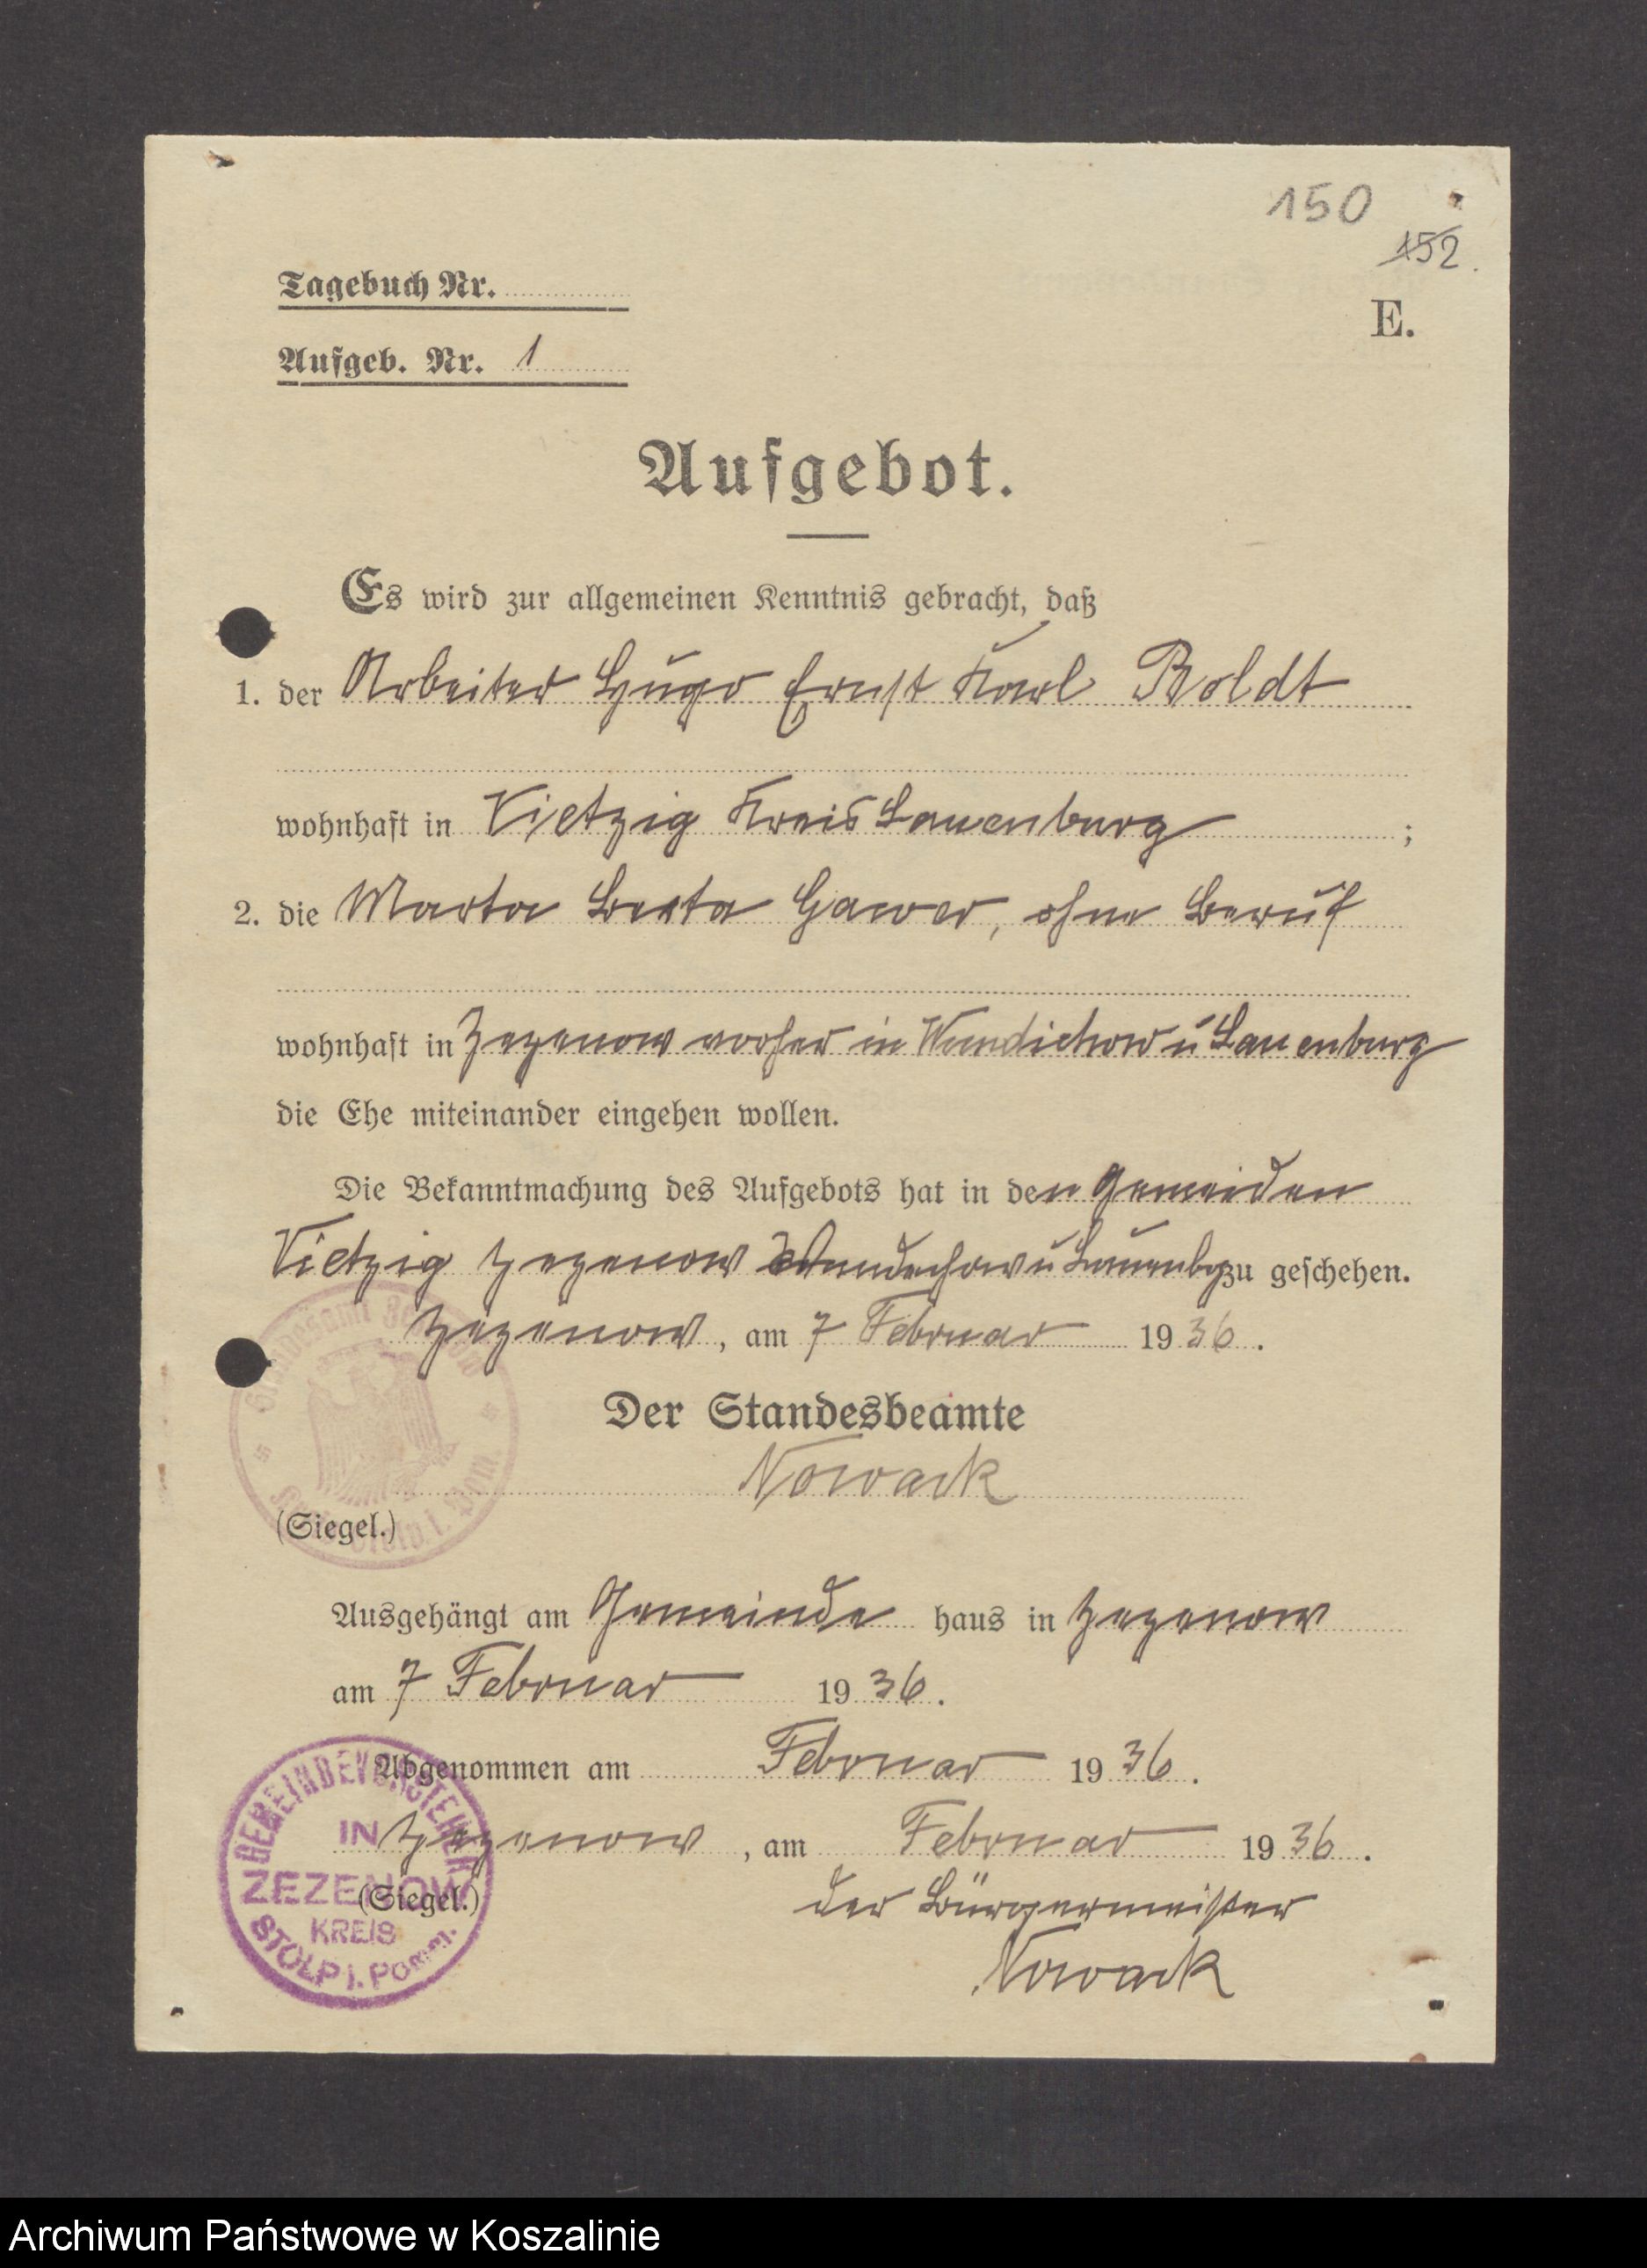 150
152.
Tagebuch Nr.
E.
Aufgeb. Nr. 1
Aufgebot.
Es wird zur allgemeinen Kenntnis gebracht, daß
1. der Arbeiter Hugo Ernst Karl Boldt
wohnhaft in Vietzig Kreis Lauenburg ;
2. die Marta Berta Gawer, ohne Beruf
wohnhaft in Zezenow vorher in Wundichow u Lauenburg
die Ehe miteinander eingehen wollen.
Die Bekanntmachung des Aufgebots hat in den Gemeiden
Vietzig Zezenow Wundechow u Lauenbg zu geschehen.
Zezenow, am 7 Februar 1936.
Der Standesbeamte
Nowack
(Siegel.)
Standesamt
Ausgehängt am Gemeinde haus in Zezenow
am 7 Februar 1936.
Abgenommen am Februar 1936.
Zezenow, am Februar 1936.
(Siegel.)
der Bürgermeister
Nowack
GEMEINDEVORSTEHER
IN
ZEZENOW
KREIS
STOLP i. Pomm.
Archiwum Państwowe w Koszalinie